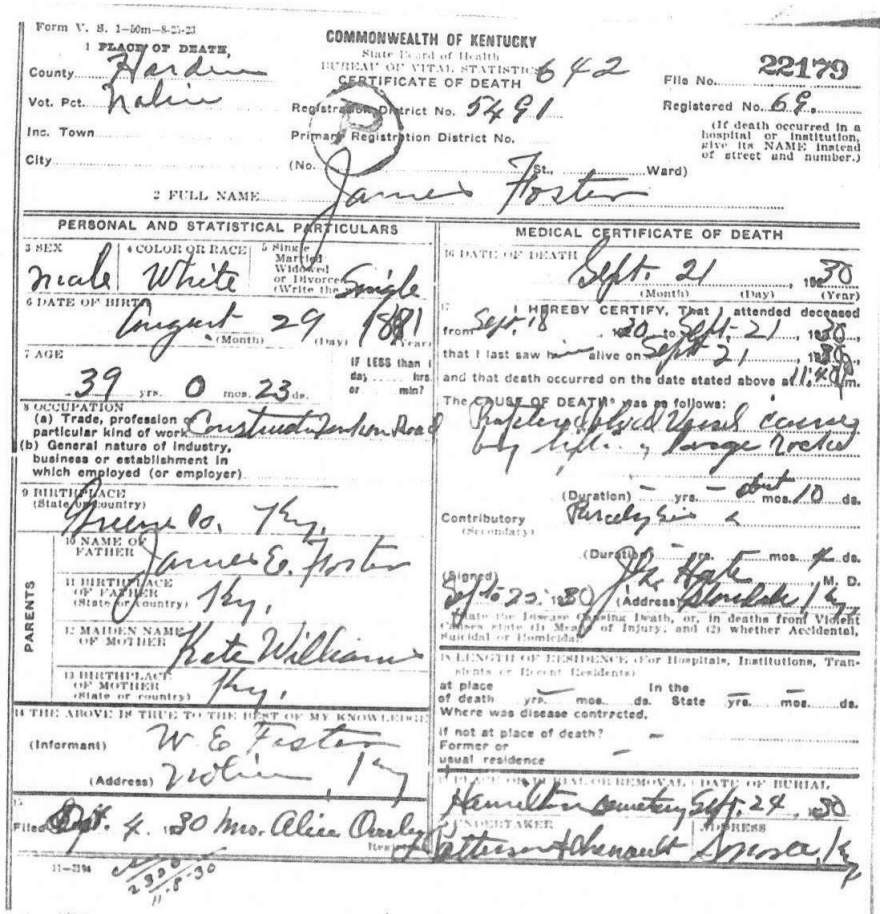 Form V. S. 1-50m-8-25-23
COMMONWEALTH OF KENTUCKY
State Board of Health
BUREAU OF VITAL STATISTICS 642
CERTIFICATE OF DEATH
1 PLACE OF DEATH
County Hardin
File No. 22179
Vot. Pct. Nolin
Registration District No. 5491
Registered No. 69.
Inc. Town
Primary Registration District No.
(If death occurred in a hospital or institution, give its NAME instead of street and number.)
City
(No. St., Ward)
2 FULL NAME James Foster
PERSONAL AND STATISTICAL PARTICULARS
3 SEX
male
4 COLOR OR RACE
White
5 Single
Married
Widowed
or Divorced
(Write the
Single
6 DATE OF BIRTH
August 29 1881
(Month) (Day) (Year)
7 AGE
39 yrs. 0 mos. 23 ds.
IF LESS than 1
day hrs.
or min?
8 OCCUPATION
(a) Trade, profession or
particular kind of work Road
(b) General nature of industry,
business or establishment in
which employed (or employer)
9 BIRTHPLACE
(State or country)
Greene Co. Ky.
PARENTS
10 NAME OF
FATHER
James E. Foster
11 BIRTHPLACE
OF FATHER
(State or country) Ky.
12 MAIDEN NAME
OF MOTHER
Kate Williams
13 BIRTHPLACE
OF MOTHER
(State or country) Ky.
14 THE ABOVE IS TRUE TO THE BEST OF MY KNOWLEDGE
(Informant) W E Foster
(Address) Nolin, Ky
15
Filed 4. 1930 Mrs. Alice
11-2194
2300
11-8-30
MEDICAL CERTIFICATE OF DEATH
16 DATE OF DEATH
Sept. 21, 1930
(Month) (Day) (Year)
17
I HEREBY CERTIFY, That I attended deceased
from Sept. 18 1930 to Sept. 21, 1930,
that I last saw him alive on Sept 21, 1930,
and that death occurred on the date stated above at 11:40 m.
The CAUSE OF DEATH* was as follows:
Ruptured blood Vessel
by large rocks
(Duration) - yrs. - mos. 10 ds.
Contributory
(Secondary)
(Duration) yrs. mos. 4 ds.
(Signed) M. D.
Sept 22. 1930 (Address) Ky.
*State the Disease Causing Death, or, in deaths from Violent
Causes state (1) Means of Injury; and (2) whether Accidental,
Suicidal or Homicidal.
18 LENGTH OF RESIDENCE (For Hospitals, Institutions, Transients or Recent Residents)
at place In the
of death yrs. mos. ds. State yrs. mos. ds.
Where was disease contrrcted,
if not at place of death? -
Former or
usual residence -
19 PLACE OF BURIAL OR REMOVAL DATE OF BURIAL
Hamilton Cemetery Sept. 24, 1930
20 UNDERTAKER ADDRESS
Patterson & Chenault Sonora, Ky